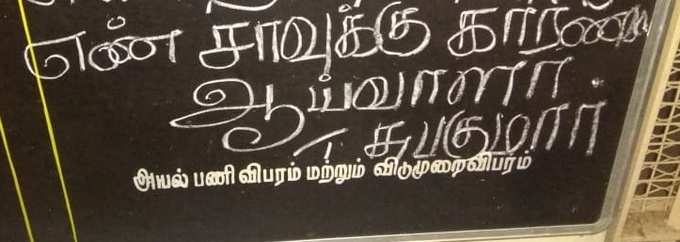 என் சாவுக்கு காரணம்
ஆய்வாளர்
சுபகுமார்.
அயல் பணி விபரம் மற்றும் விடுமுறைவிபரம்